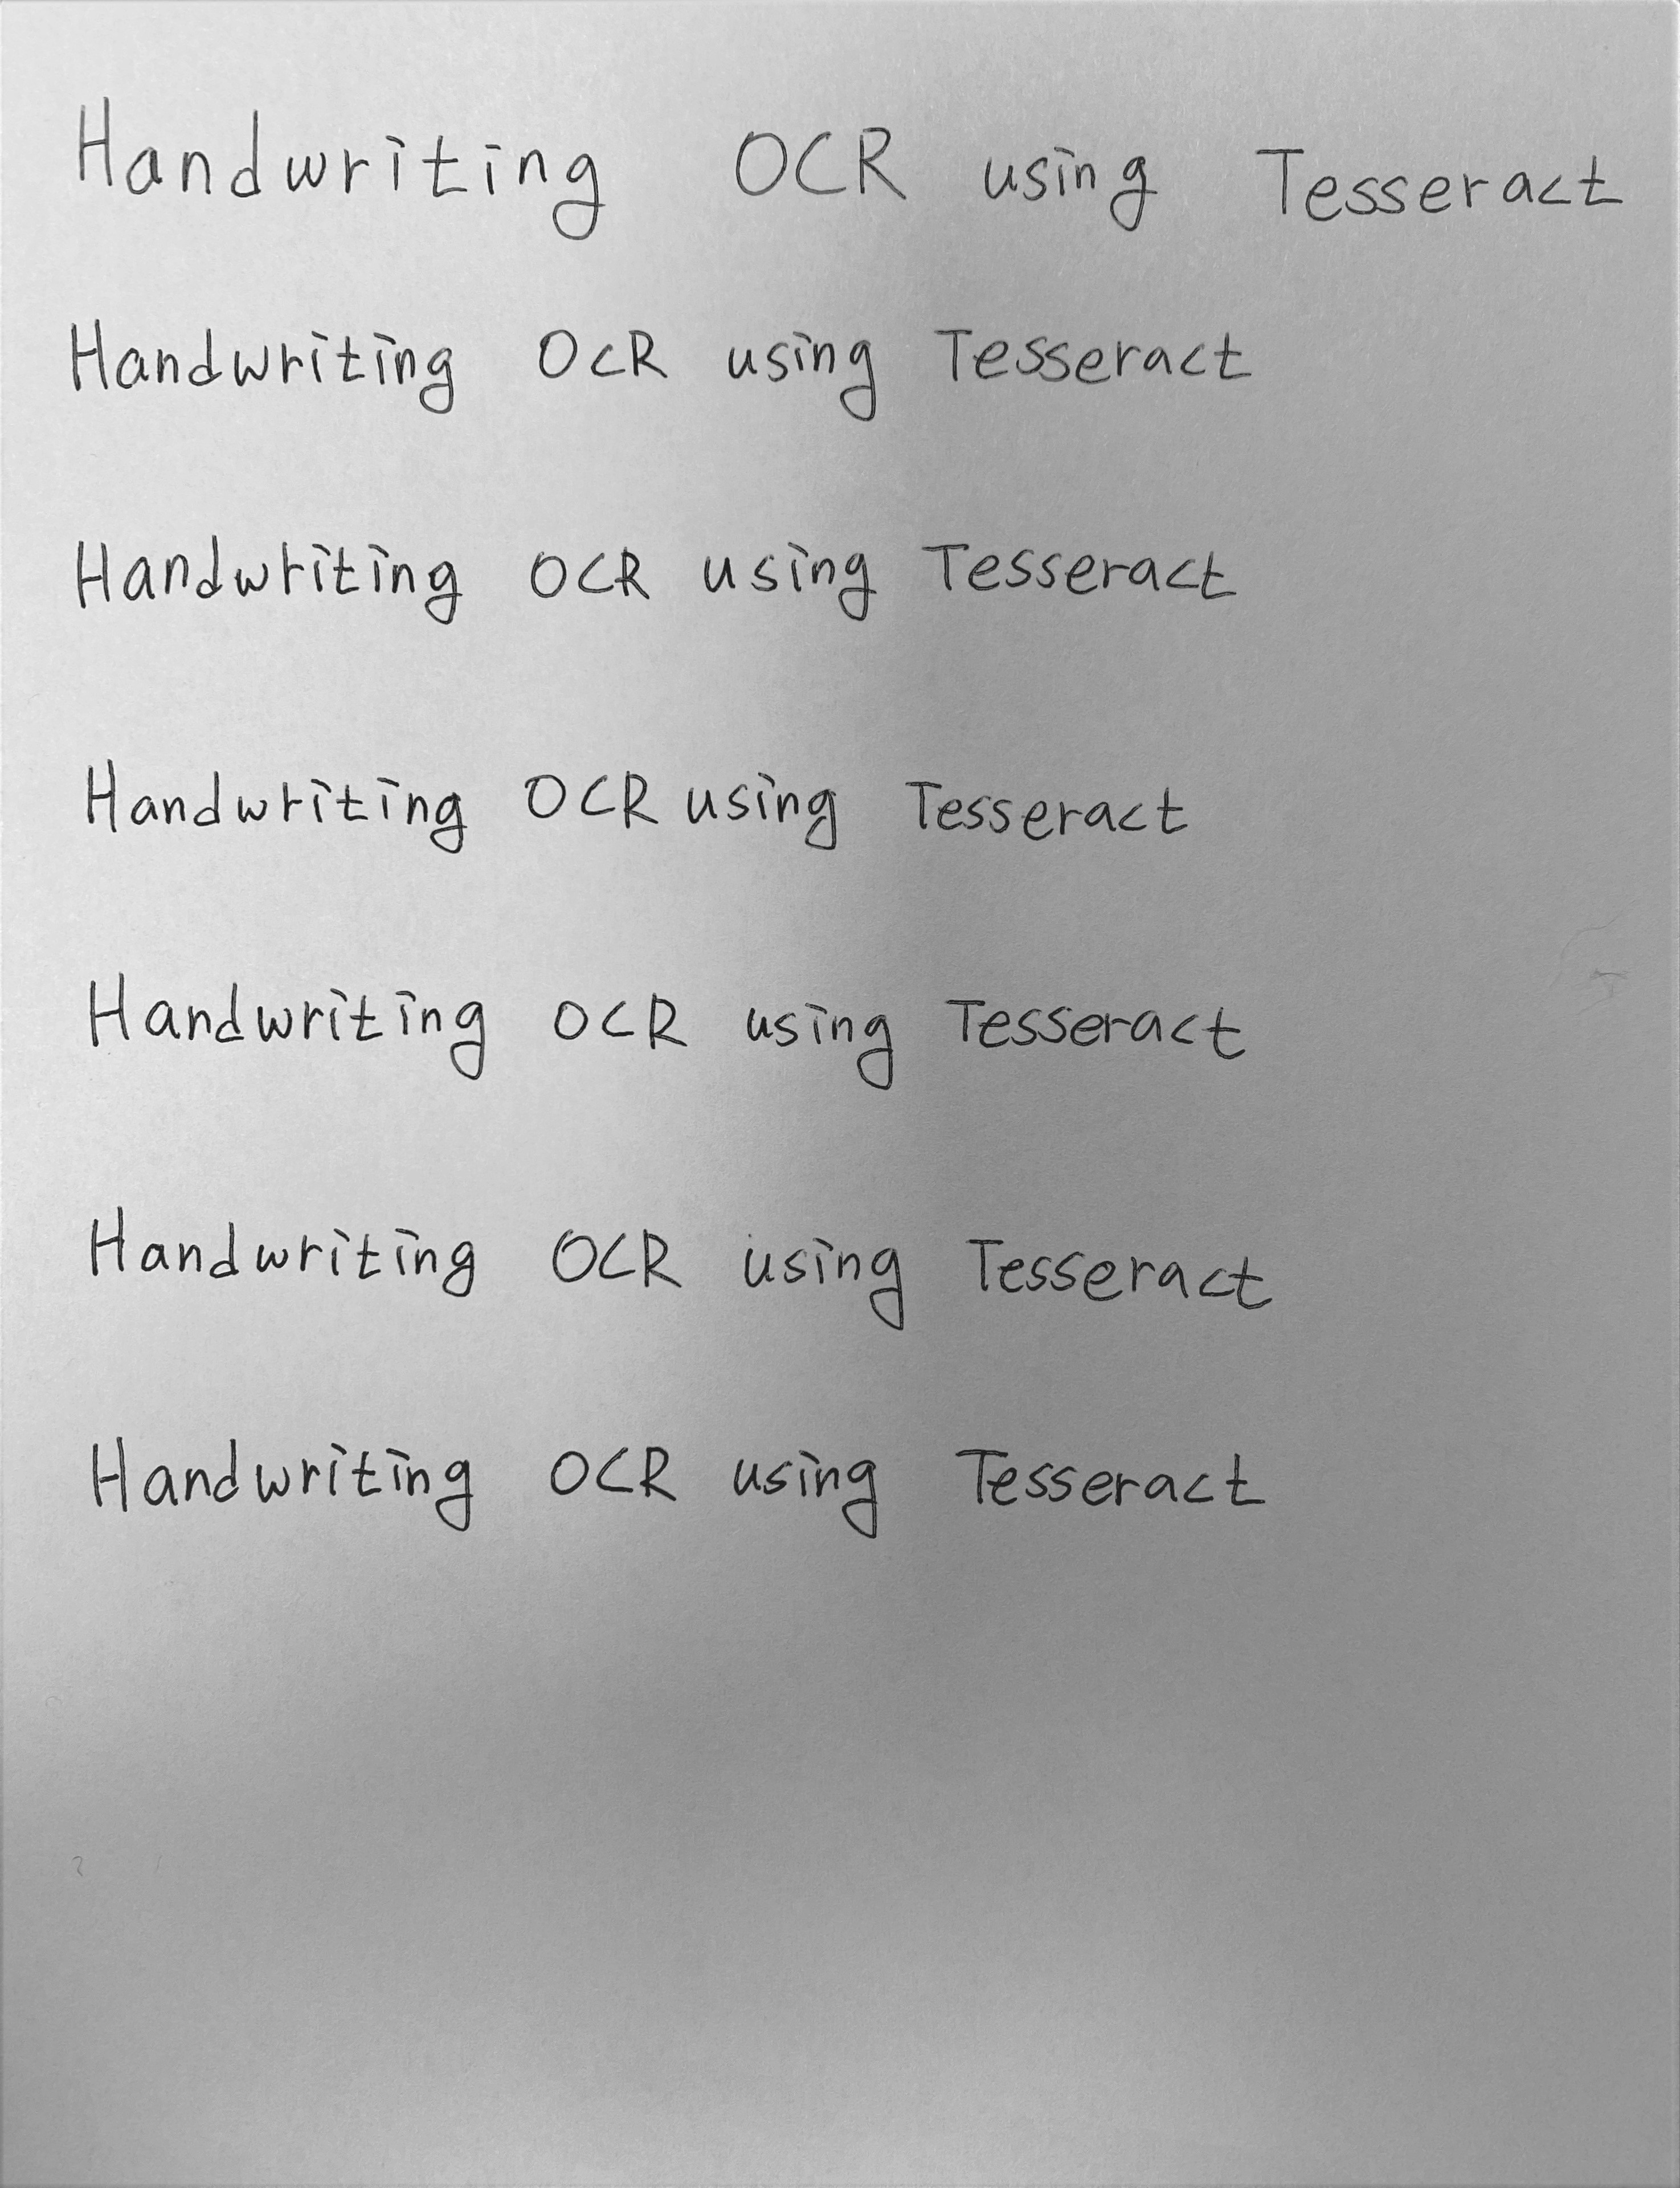 Handwriting OCR using Tesseract
Handwriting OCR using Tesseract
Handwriting OCR using Tesseract
Handwriting OCR using Tesseract
Handwriting OCR using Tesseract
Handwriting OCR using Tesseract
Handwriting OCR using Tesseract